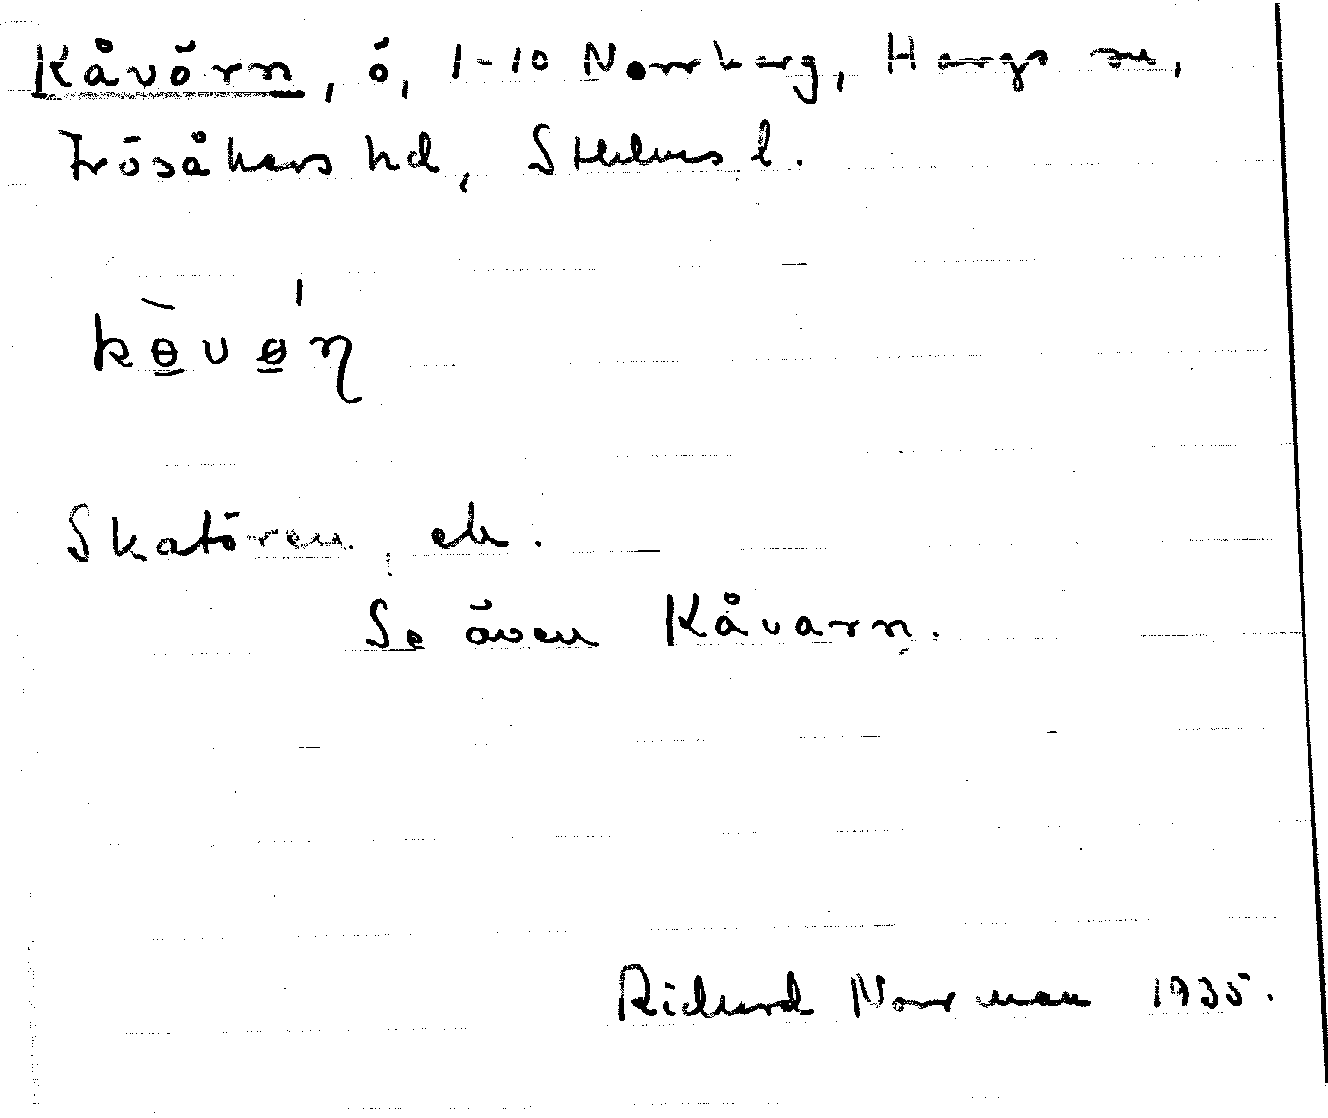 Kåvörn, ö, 1-10 Norrberg, Hargs sn,
Frösåkers hd, Sthlms l.
kèvø'n
Skatören, ek.
Se även Kåvarn.
Richard Norrman 1935.